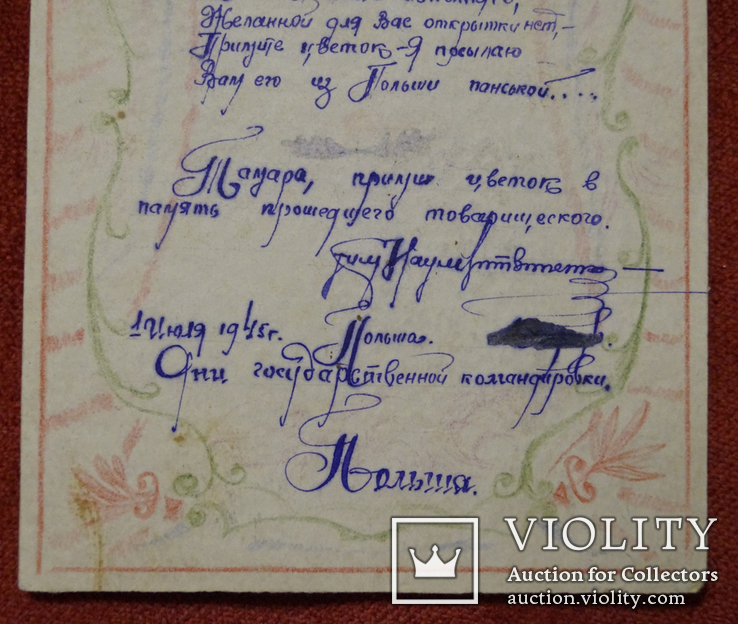 Желанной для Вас открытки нет,–
Примите цветок–Я посылаю
Вам его из Польши панськой....
Тамара, прими цветок в
память прошедшего товарищеского.
1 Июля 1945г. Польша.
Дни государственной командировки.
Польша.
VIOLITY
Auction for Collectors
auction.violity.com